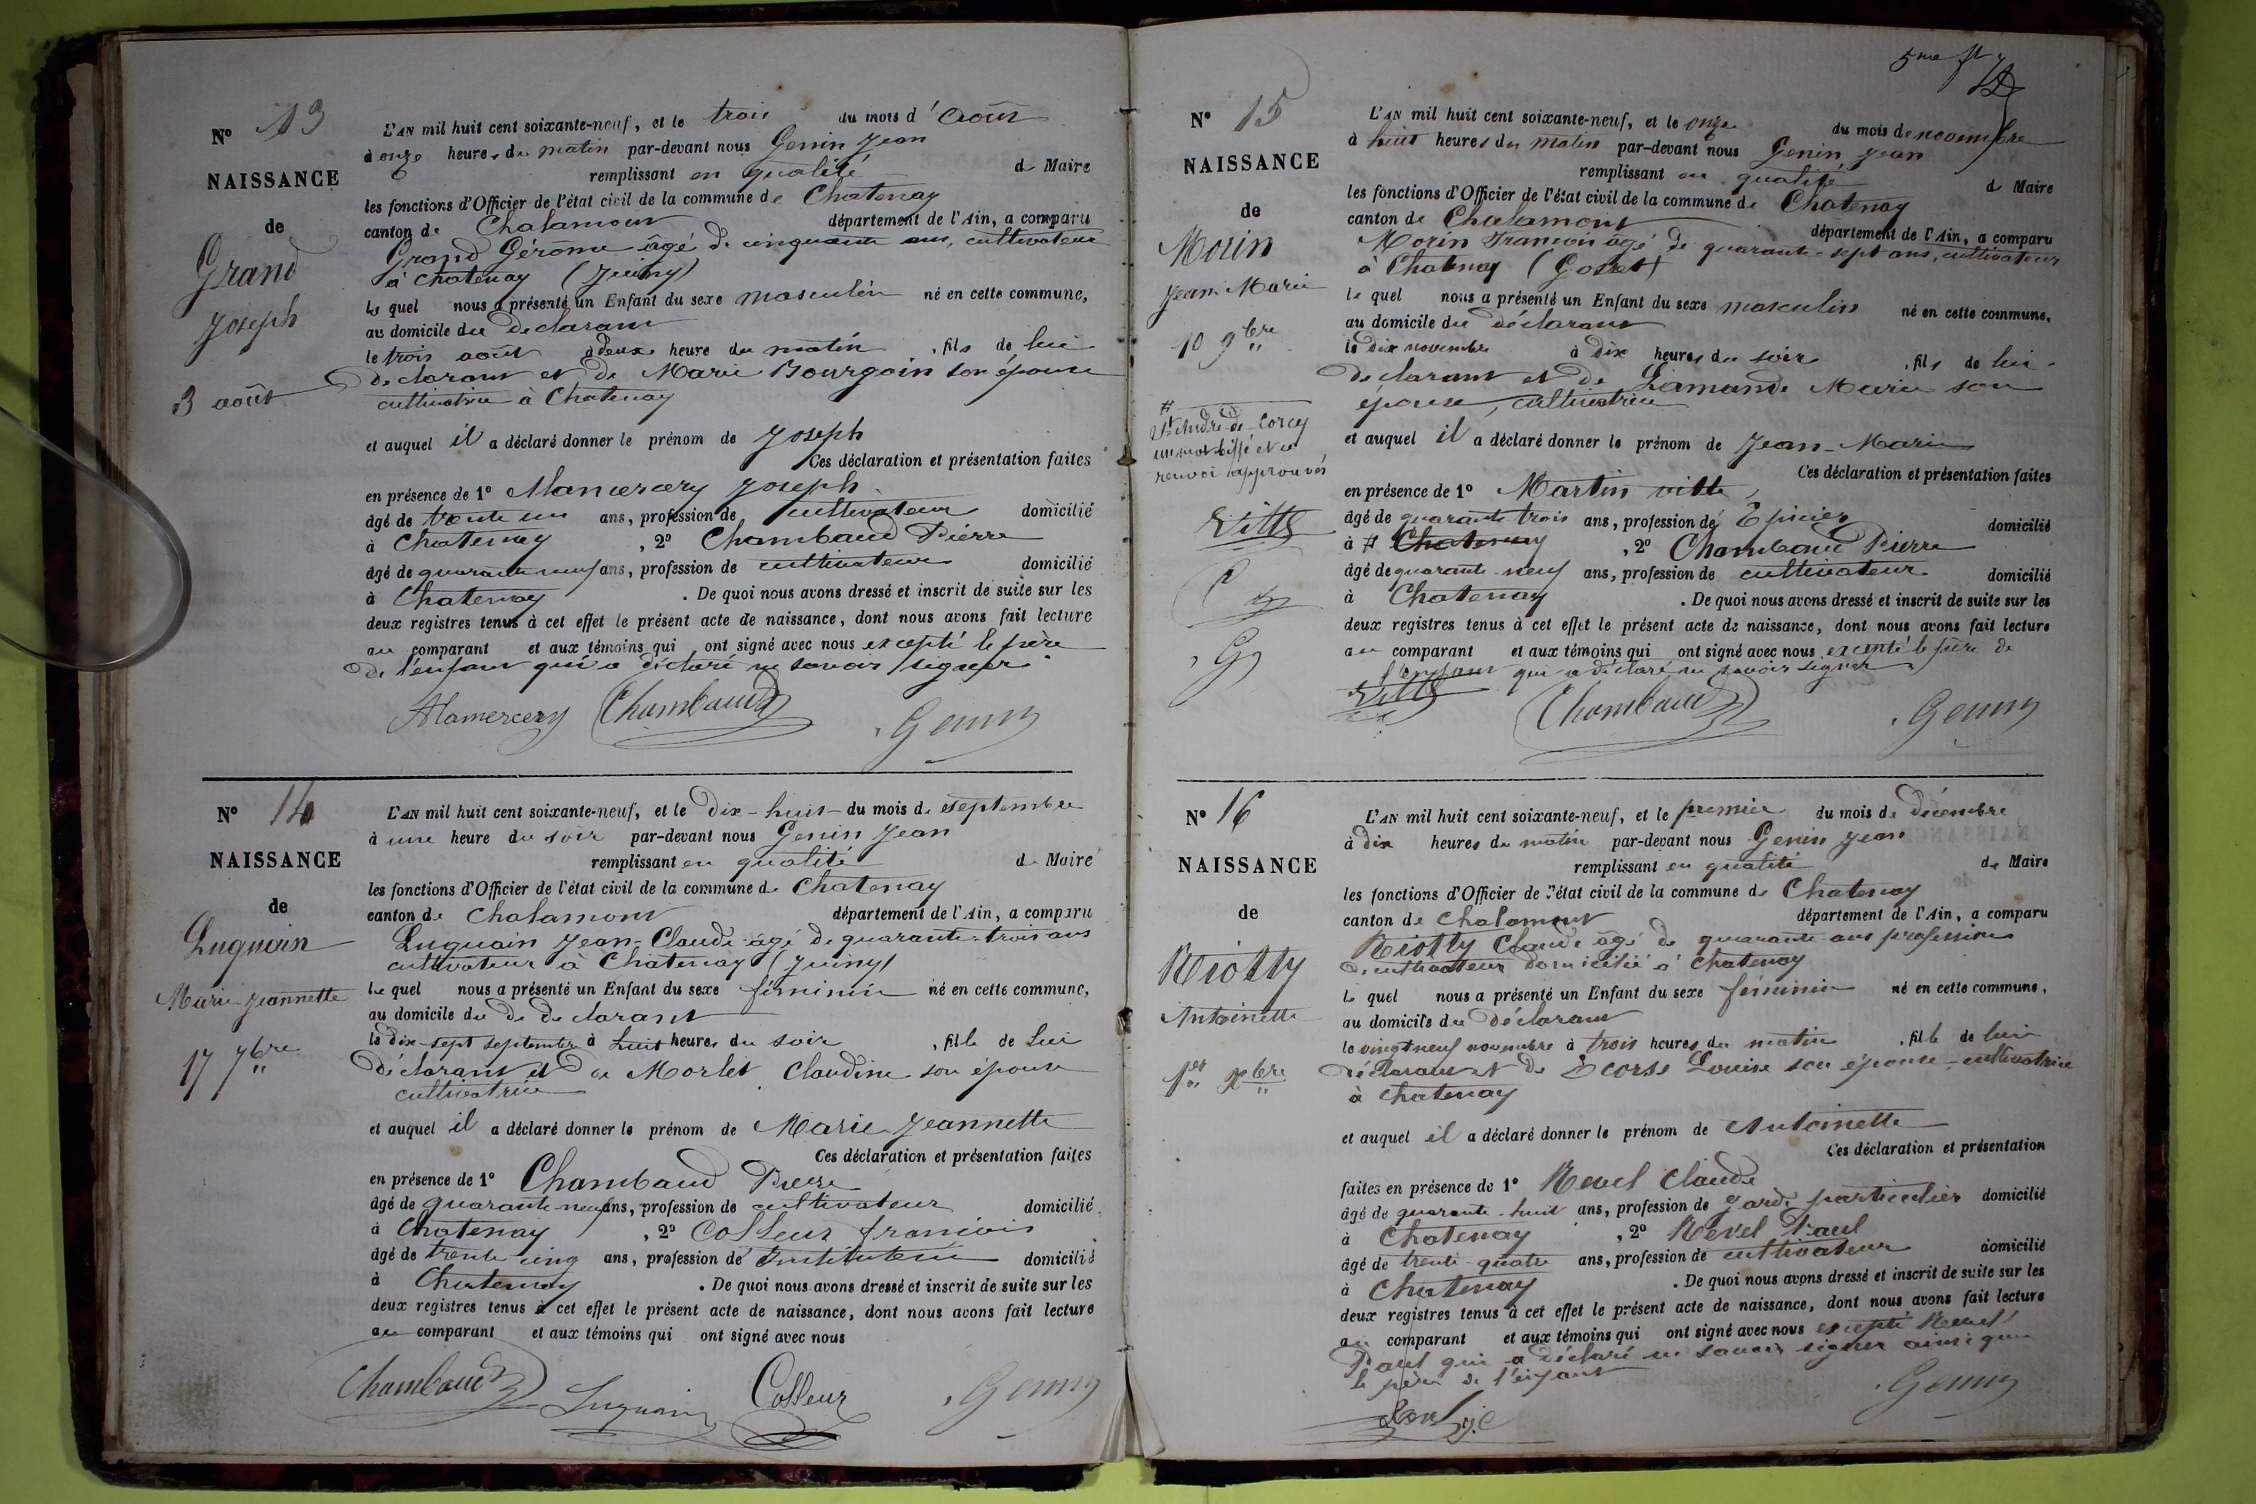 N° 13
NAISSANCE
de
Grand
Joseph
3 août
L'AN mil huit cent soixante-neuf, et le trois du mois d'août
à onze heures du matin par-devant nous Genin Jean
remplissant en qualité de Maire
les fonctions d'Officier de l'état civil de la commune de Chatenay
canton de Chalamont département de l'Ain, a comparu
Grand Gérome âgé de cinquante ans, cultivateur
à Chatenay (Juiny)
le quel nous a présenté un Enfant du sexe masculin né en cette commune,
au domicile du déclarant
le trois août à deux heure du matin, fils de lui
déclarant et de Marie Bourgoin son épouse
cultivatrice à Chatenay
et auquel il a déclaré donner le prénom de Joseph
Ces déclaration et présentation faites
en présence de 1° Alamercery Joseph
âgé de trente un ans, profession de cultivateur domicilié
à Chatenay, 2° Chambaud Pierre
âgé de quarante neuf ans, profession de cultivateur domicilié
à Chatenay. De quoi nous avons dressé et inscrit de suite sur les
deux registres tenus à cet effet le présent acte de naissance, dont nous avons fait lecture
au comparant et aux témoins qui ont signé avec nous excepté le père
de l'enfant qui a déclaré ne savoir signer.
Alamercery Chambaud Genin
N° 14
NAISSANCE
de
Luquain
Marie Jeannette
17 7bre
L'AN mil huit cent soixante-neuf, et le dix-huit du mois de septembre
à une heure du soir par-devant nous Genin Jean
remplissant en qualité de Maire
les fonctions d'Officier de l'état civil de la commune de Chatenay
canton de Chalamont département de l'Ain, a comparu
Luquain Jean-Claude âgé de quarante-trois ans
cultivateur à Chatenay (Juiny)
le quel nous a présenté un Enfant du sexe féminin né en cette commune,
au domicile du de déclarant
le dix-sept septembre à huit heures du soir, fille de lui
déclarant et de Morlet Claudine son épouse
cultivatrice
et auquel il a déclaré donner le prénom de Marie Jeannette
Ces déclaration et présentation faites
en présence de 1° Chambaud Pierre
âgé de quarante-neuf ans, profession de cultivateur domicilié
à Chatenay, 2° Colleur francois
âgé de trente cinq ans, profession de Instituteur domicilié
à Chatenay. De quoi nous avons dressé et inscrit de suite sur les
deux registres tenus à cet effet le présent acte de naissance, dont nous avons fait lecture
au comparant et aux témoins qui ont signé avec nous
Chambaud Luquain Colleur Genin
5me ft
N° 15
NAISSANCE
de
Morin
Jean-Marie
10 9bre
# St André-de-Corcy
un mot biffé et le
renvoi approuvés
Vitte
C
G
L'AN mil huit cent soixante-neuf, et le onze du mois de novembre
à huit heures du matin par-devant nous Genin Jean
remplissant en qualité de Maire
les fonctions d'Officier de l'état civil de la commune de Chatenay
canton de Chalamont département de l'Ain, a comparu
Morin Francois âgé de quarante-sept ans, cultivateur
à Chatenay (Gosset)
le quel nous a présenté un Enfant du sexe masculin né en cette commune,
au domicile du déclarant
le dix novembre à dix heures du soir, fils de lui
déclarant et de Lamande Marie son
épouse, cultivatrice
et auquel il a déclaré donner le prénom de Jean-Marie
Ces déclaration et présentation faites
en présence de 1° Martin vitte,
âgé de quarante trois ans, profession de Epicier domicilié
à # Chatenay, 2° Chambaud Pierre
âgé de quarante-neuf ans, profession de cultivateur domicilié
à Chatenay. De quoi nous avons dressé et inscrit de suite sur les
deux registres tenus à cet effet le présent acte de naissance, dont nous avons fait lecture
au comparant et aux témoins qui ont signé avec nous excepté le père de
l'enfant qui a déclaré ne savoir signer
Vitte Chambaud Genin
N° 16
NAISSANCE
de
Riotty
Antoinette
1er Xbre
L'AN mil huit cent soixante-neuf, et le premier du mois de décembre
à dix heures du matin par-devant nous Genin Jean
remplissant en qualité de Maire
les fonctions d'Officier de l'état civil de la commune de Chatenay
canton de Chalamont département de l'Ain, a comparu
Riotty Claude âgé de quarante ans profession
de cultivateur domicilié à Chatenay
le quel nous a présenté un Enfant du sexe féminin né en cette commune,
au domicile du déclarant
le vingt neuf novembre à trois heures du matin, fille de lui
déclarant et de Ecorse Louise son épouse cultivatrice
à Chatenay
et auquel il a déclaré donner le prénom de Antoinette
Ces déclaration et présentation
faites en présence de 1° Revel Claude
âgé de quarante-huit ans, profession de garde particulier domicilié
à Chatenay, 2° Revel Paul
âgé de trente-quatre ans, profession de cultivateur domicilié
à Chatenay. De quoi nous avons dressé et inscrit de suite sur les
deux registres tenus à cet effet le présent acte de naissance, dont nous avons fait lecture
au comparant et aux témoins qui ont signé avec nous excepté Revel
Paul qui a déclaré ne savoir signer ainsi que
le père de l'enfant
Genin